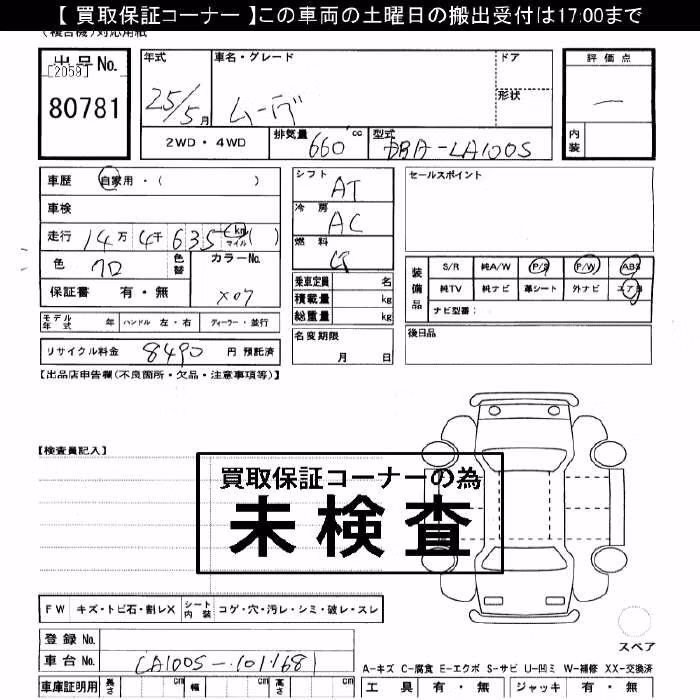 【 買取保証コーナー 】この車両の土曜日の搬出受付は17:00まで
(複合機)対応用紙
出品No.
[2059]
80781
年式
25/5月
車名・グレード
ムーヴ
ドア
形状
評価点
—
内装
2WD・4WD
排気量
660 cc
型式
DBA-LA100S
車歴 自家用・( )
車検
走行 14万 4千 635 km マイル ( )
色 クロ 色替
カラーNo.
X07
保証書 有・無
モデル年式 年 ハンドル 左・右 ディーラー・並行
リサイクル料金 8490 円 預託済
シフト
AT
冷房
AC
燃料
乗車定員 名
積載量 kg
総重量 kg
名変期限
月 日
セールスポイント
装備品
S/R 純A/W P/S P/W ABS
純TV 純ナビ 革シート 外ナビ エアB
ナビ型番:
後日品
【出品店申告欄(不良箇所・欠品・注意事項等)】
【検査員記入】
買取保証コーナーの為
未検査
FW キズ・トビ石・割レX シート内装 コゲ・穴・汚レ・シミ・破レ・スレ
登録No.
車台No. LA100S-101168
車庫証明用 長さ cm 幅 cm 高さ cm
スペア
A-キズ C-腐食 E-エクボ S-サビ U-凹ミ W-補修 XX-交換済
工具 有・無 ジャッキ 有・無